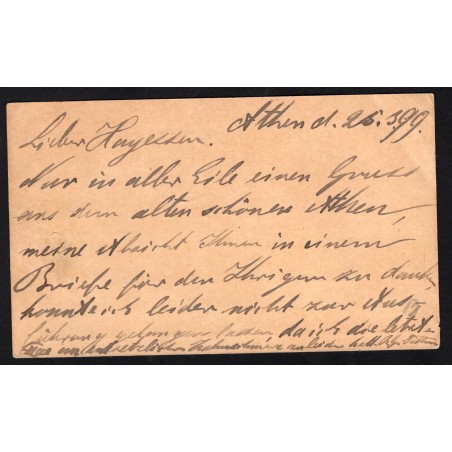 Athen d. 26.3.99.
Lieber Hayessen.
Nur in aller Eile einen Gruss
aus dem alten schönen Athen,
meine Absicht Ihnen in einem
Briefe für den Ihrigen zu danken
konnte ich leider nicht zur Aus
führung gelangen lassen, da ich die letzten
Tage an zu leiden hatte